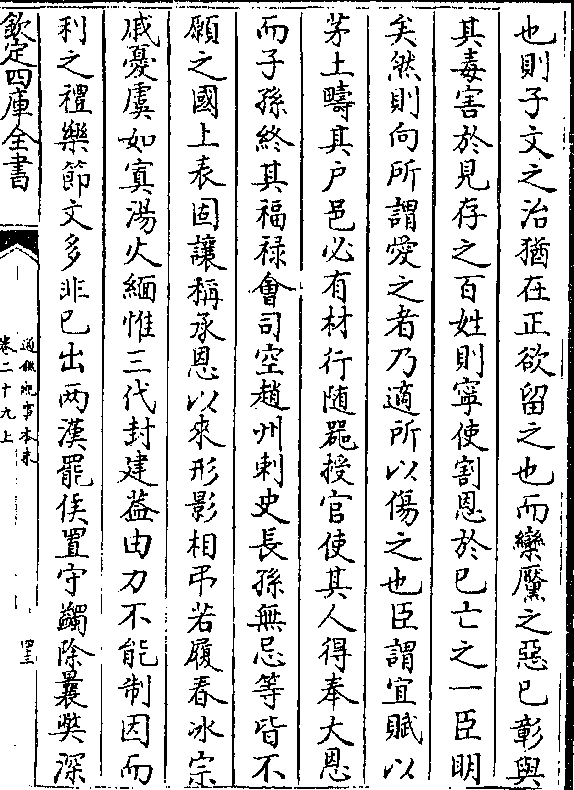 也則子文之治猶在正欲留之也而欒黶之惡已彰與
其毒害於見存之百姓則寧使割恩於已亡之一臣明
矣然則向所謂愛之者乃適所以傷之也臣謂宜賦以
茅土疇其户邑必有材行随器授官使其人得奉大恩
而子孫終其福禄會司空趙州刺史長孫無忌等皆不
願之國上表固讓稱承恩以來形影相弔若履春冰宗
戚憂虞如寘湯火緬惟三代封建葢由力不能制因而
利之禮樂節文多非已出两漢罷侯置守蠲除曩弊深
欽定四庫全書
通鑑紀事本末
卷二十九上
四三